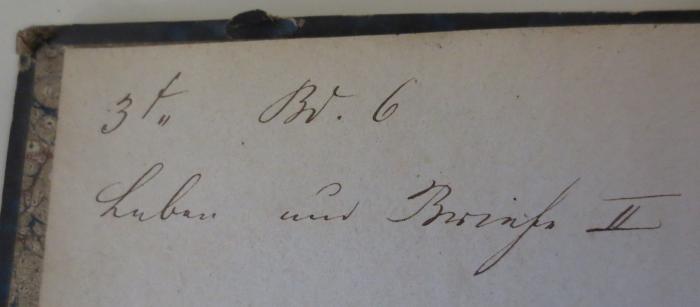 Bd. 6
Leben und Briefe II